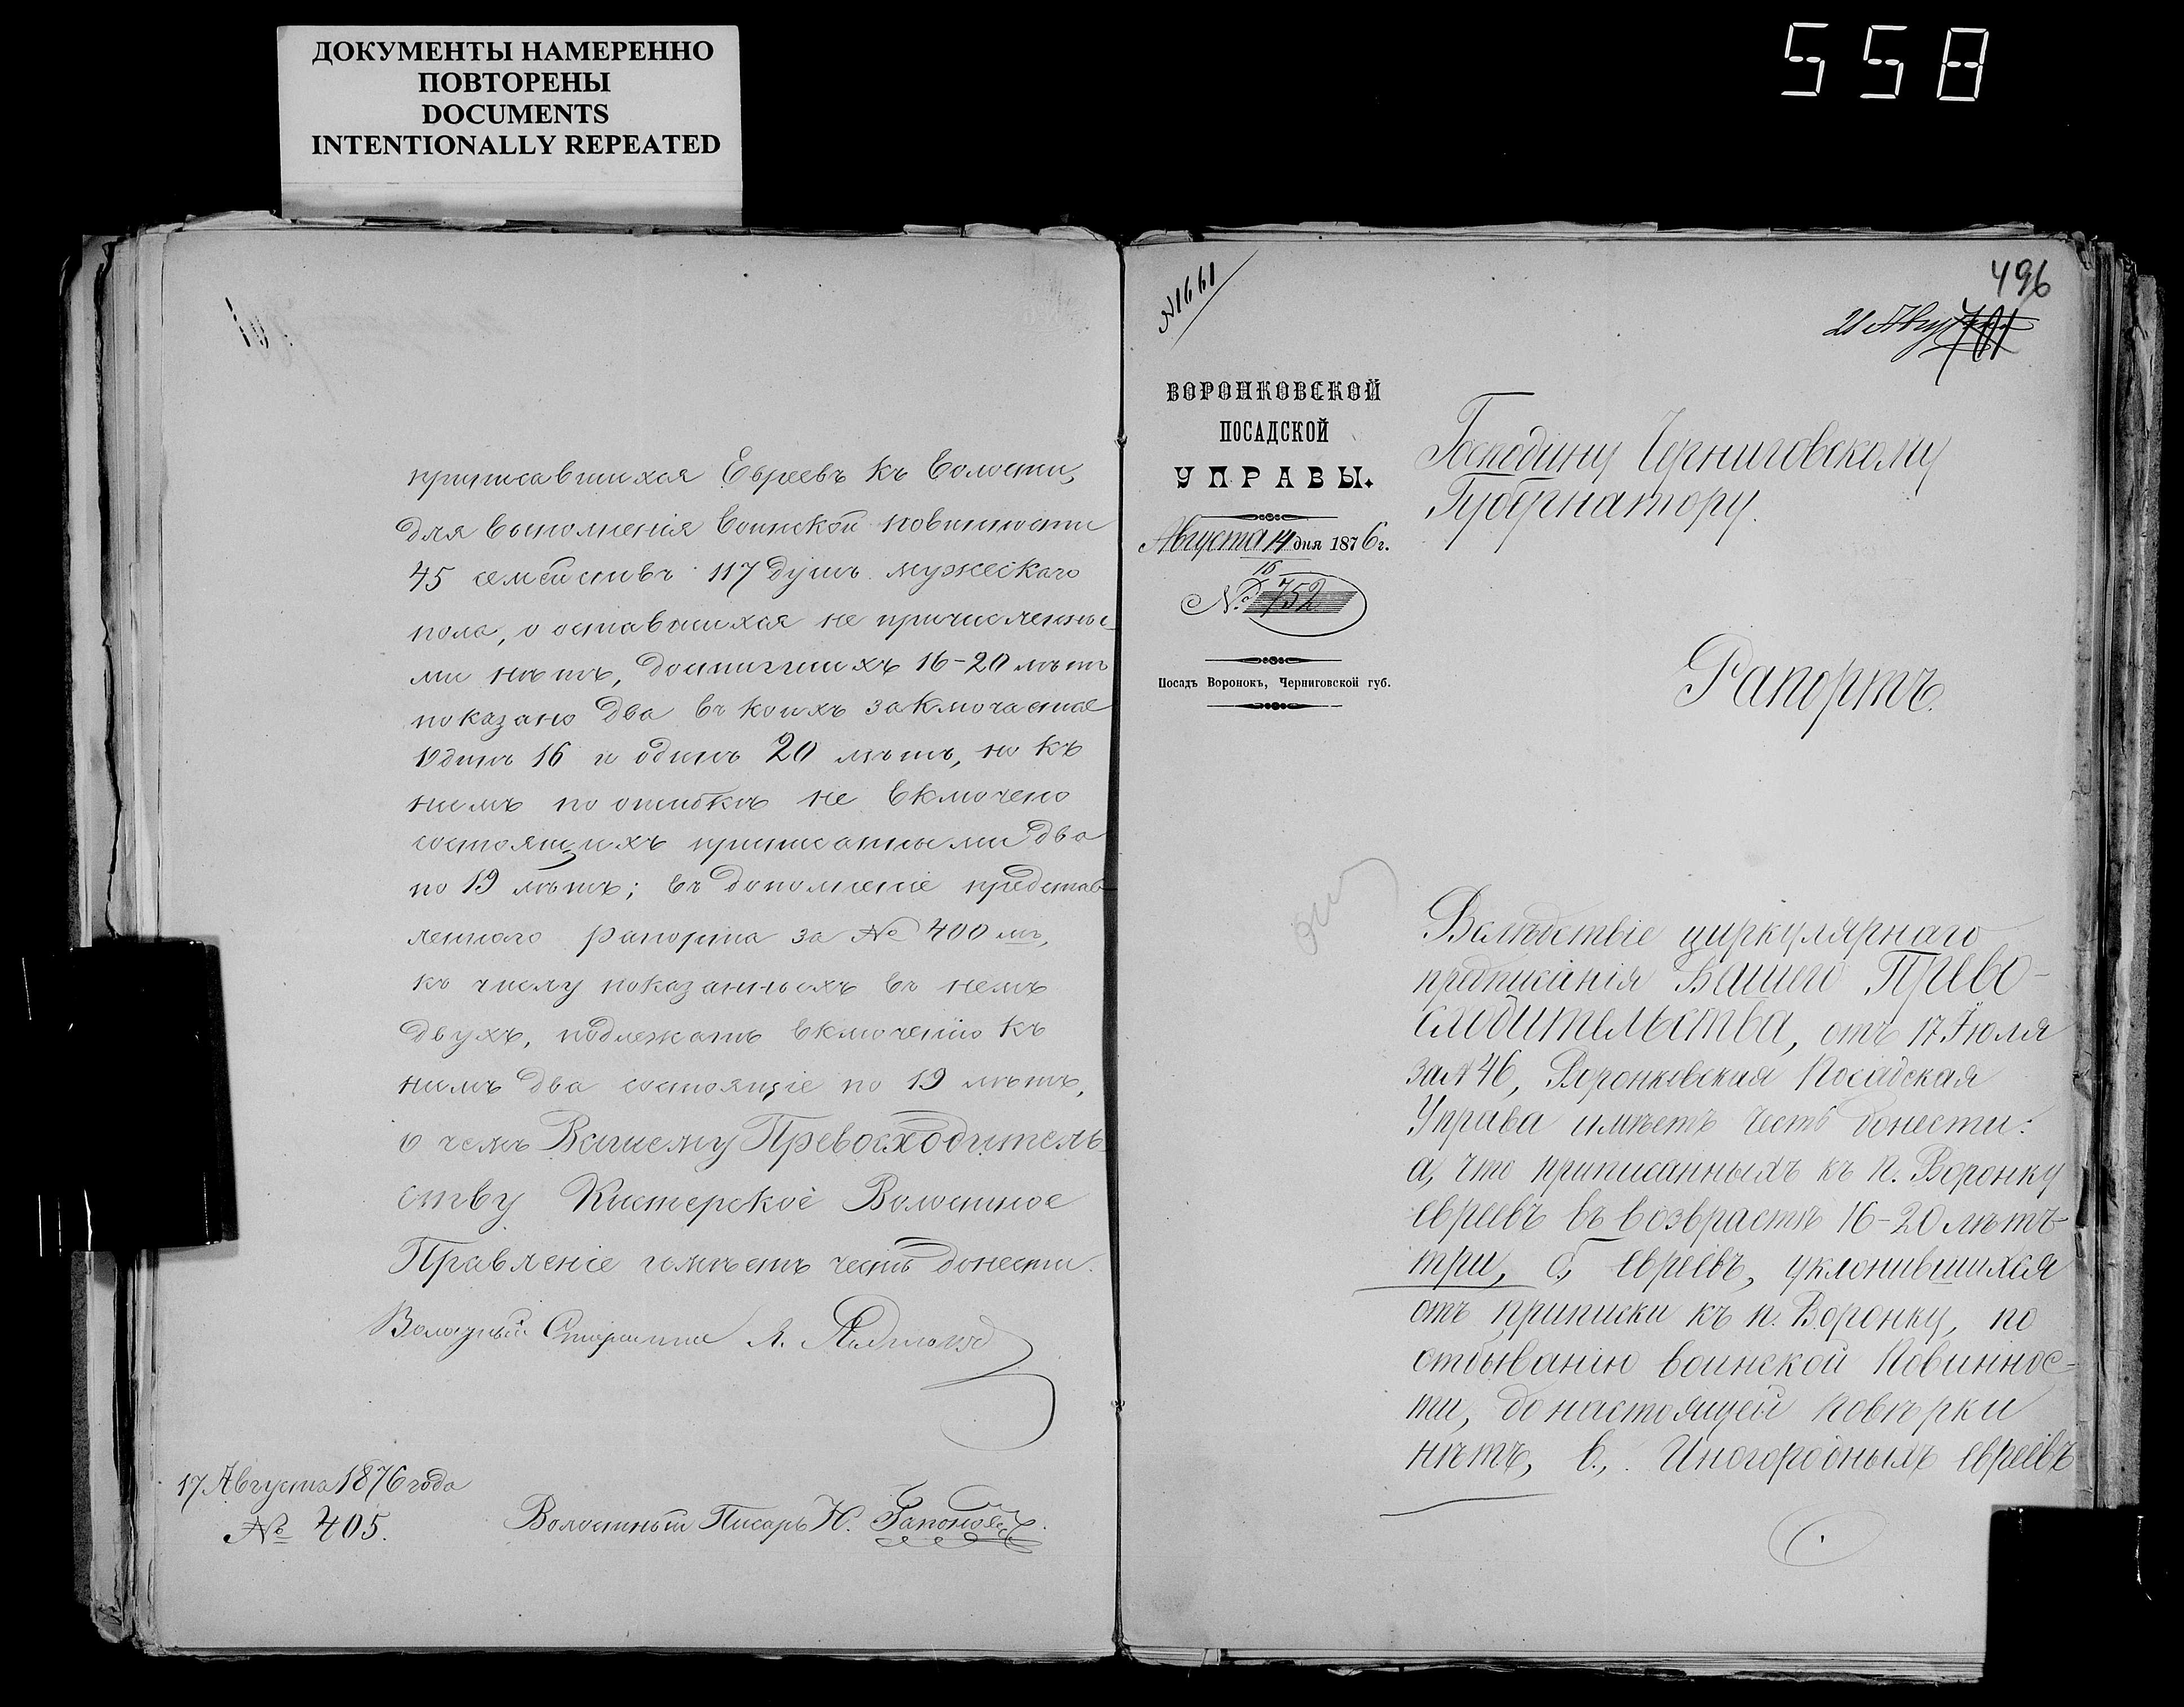 ДОКУМЕНТЫ НАМЕРЕННО
ПОВТОРЕНЫ
DOCUMENTS
INTENTIONALLY REPEATED
558
приписавшихся Евреевъ къ волости,
для выполненія воинской повинности
45 семействъ 117 душъ мужескаго
пола, о оставшихся не причисленны-
ми нѣтъ, достигшихъ 16-20 лѣтъ
показано два въ коихъ заключается
один 16 и один 20 лѣтъ, но къ
нимъ по ошибкѣ не включено
состоящихъ приписанными два
по 19 лѣтъ; въ дополненіе представ-
леннаго рапорта за № 400 мъ,
къ числу показанныхъ въ немъ
двухъ, подлежатъ включенію къ
нимъ два состоящіе по 19 лѣтъ,
о чемъ Вашему Превосходитель-
ству Кистерское Волостное
Правленіе имѣетъ честь донести.
Волостный Старшина Я.
17 Августа 1876 года
№ 405.
Волостный Писарь Н. Гапоновъ.
№1661
496
21 Авг
701
ВОРОНКОВСКОЙ
ПОСАДСКОЙ
УПРАВЫ.
Августа 14 дня 1876 г.
16
№ 752
Посадъ Воронокъ, Черниговской губ.
Господину Черниговскому
Губернатору.
Рапортъ.
Вслѣдствіе циркулярнаго
предписанія Вашего Прево-
сходительства, отъ 17 Іюля
за № 46, Воронковская Посадская
Управа имѣетъ честь донести:
а, что приписанныхъ къ п. Воронку
евреевъ въ возврастѣ 16-20 лѣтъ
три, б, евреевъ, уклонившихся
отъ приписки къ п. Воронку, по
отбыванію воинской повиннос-
ти, до настоящей повѣрки
нѣтъ, в., Иногородныхъ евреевъ